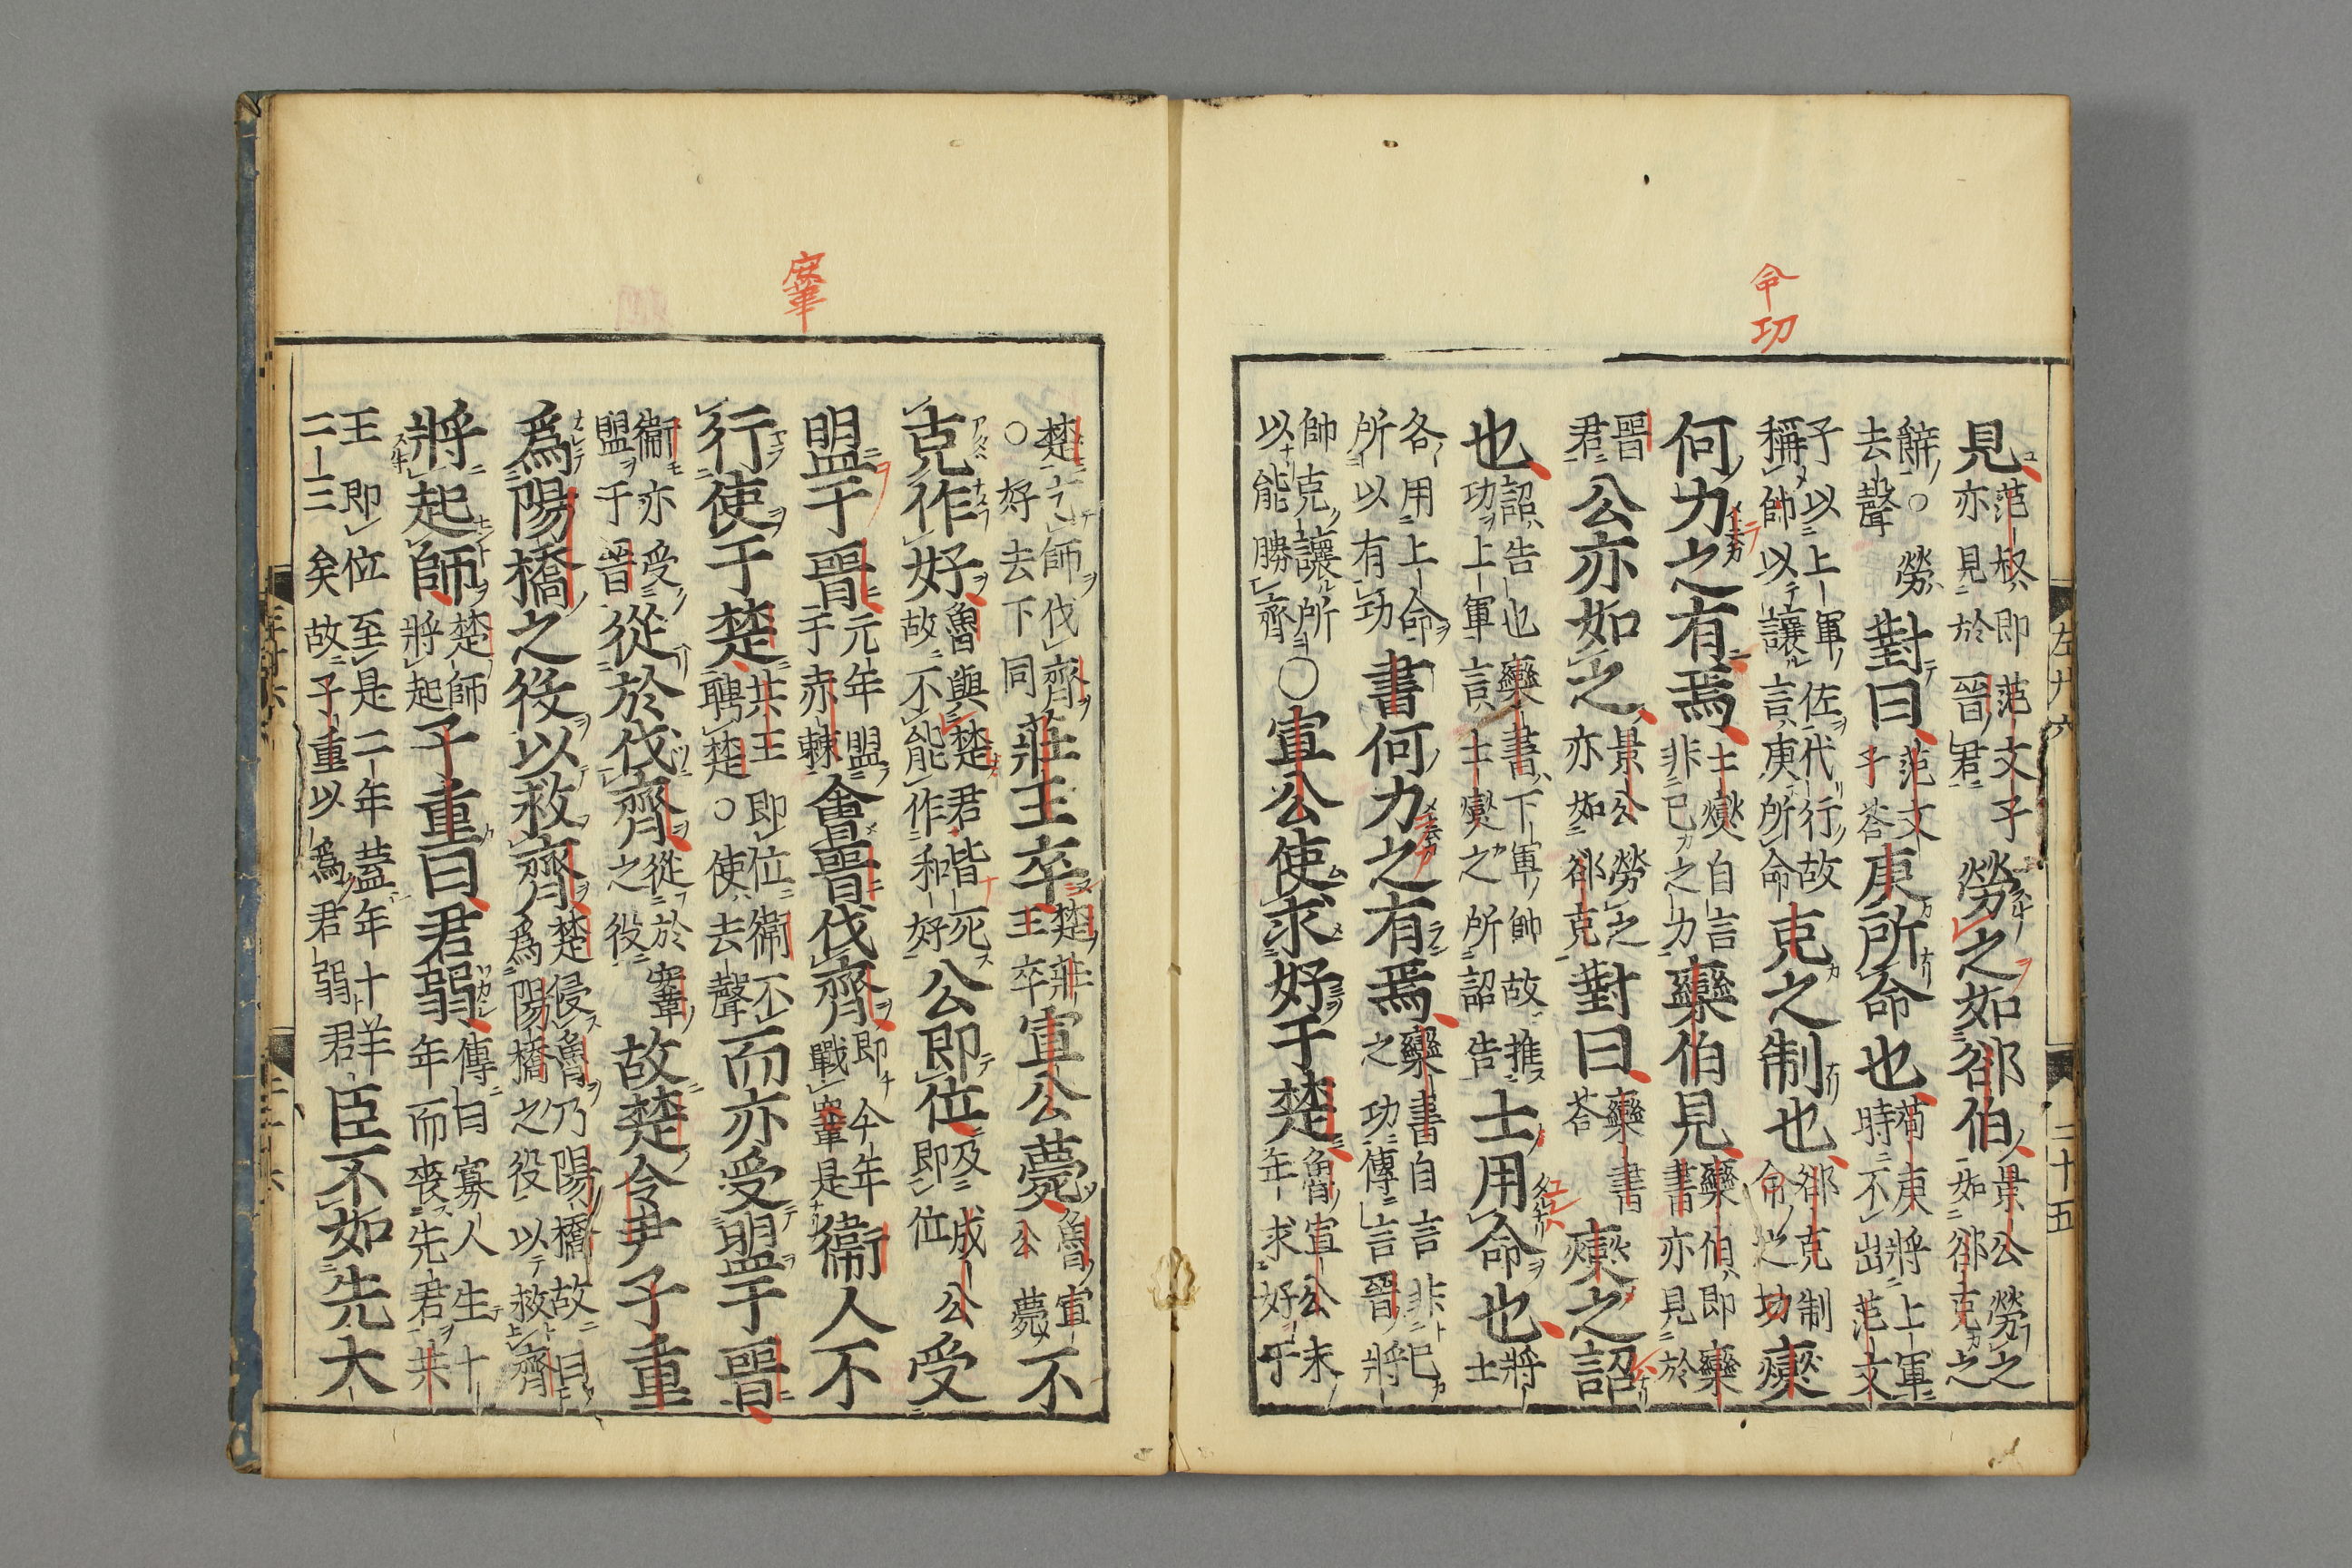 令功
二十五
見范叔即范文子亦見於晉君勞之如郤伯景公勞之如郤克之
辭○勞去聲對曰范文子荅庚所命也荀庚將上軍時不出范文
子以上軍佐代行故稱帥以讓言庚所命克之制也郤克制命之功燮
何力之有焉士燮自言非己之力欒伯見欒伯即欒書亦見於
晉君公亦如之景公勞之亦如郤克對曰欒書荅燮之詔
也詔告也欒書下軍帥故推功上軍言士燮之所詔告士用命也將士
各用上命所以有功書何力之有焉欒書自言非己之功傳言晉將
帥克讓所以能勝齊○宣公使求好于楚魯宣公末年求好于
鞌
楚乞師伐齊○好去下同莊王卒楚莊王卒宣公薨魯宣公薨不
克作好魯與楚君皆死故不能作和好公即位及成公即位受
盟于晉元年盟于赤棘會晉伐齊即今年戰鞌是衞人不
行使于楚共王即位衞不聘楚○使去聲而亦受盟于晉
衞亦受盟于晉從於伐齊從於鞌之役故楚令尹子重
爲陽橋之役以救齊楚侵魯乃陽橋故曰爲陽橋之役以救齊
將起師楚師將起子重曰君弱傳曰寡人生十年而喪先君共
王即位至是二年蓋年十二三矣故子重以爲君弱君臣不如先大